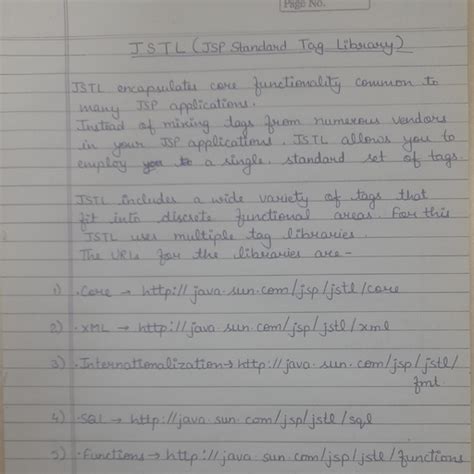 Page No.
JSTL (JSP Standard Tag Library)
JSTL encapsulates core functionality common to
many JSP applications.
Instead of mixing tags from numerous vendors
in your JSP applications, JSTL allows you to
employ a single, standard set of tags.
JSTL includes a wide variety of tags that
fit into discrete functional areas. For this
JSTL uses multiple tag libraries.
The URIs for the libraries are -
1) · Core → http://java.sun.com/jsp/jstl/core
2) · XML → http://java.sun.com/jsp/jstl/xml
3) · Internationalization → http://java.sun.com/jsp/jstl/
fmt
4) · SQL → http://java.sun.com/jsp/jstl/sql
5) · Functions → http://java.sun.com/jsp/jstl/functions